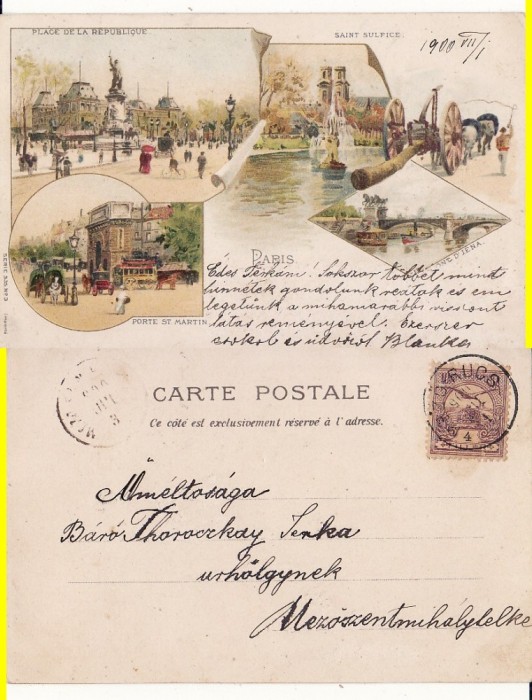 PLACE DE LA REPUBLIQUE
SAINT SULPICE
1900 VII/1
PONT D'IÉNA
PARIS
PORTE ST MARTIN
Édes Terkám! Sokszor többet mint
hinnétek gondolunk reátok és em
legetünk a mihamarábbi viszont
látás reményével. Ezerszer
csókol és üdvözöl Blanka
CARTE POSTALE
Ce côté est exclusivement réservé à l'adresse.
Ő Méltósága
Báró Thoroczkay Terka
urhölgynek
Mezőszentmihalytelke